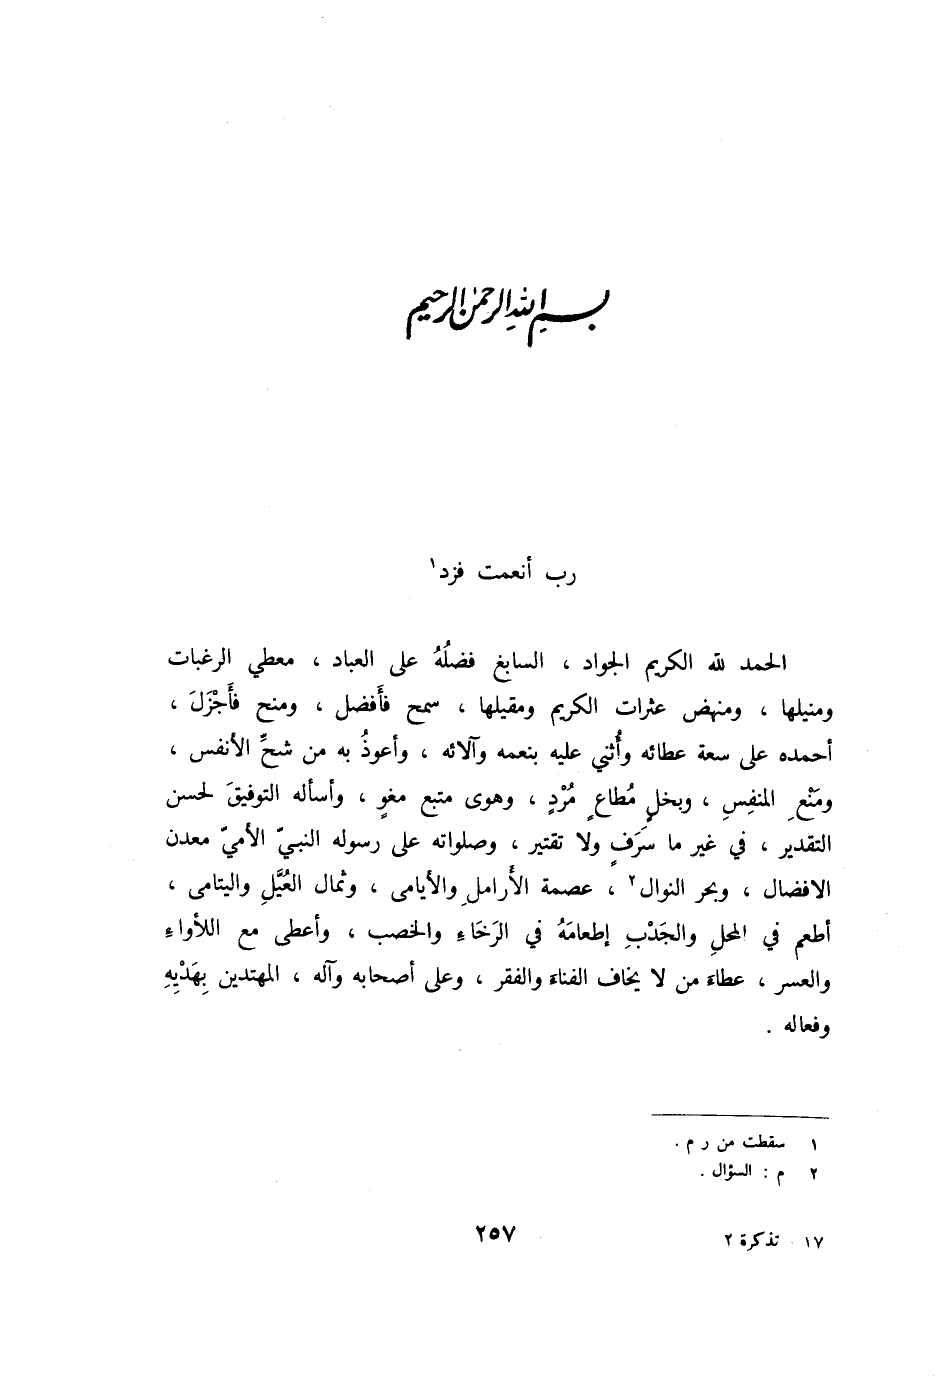 بسم الله الرحمن الرحيم
رب أنعمت فزد١
الحمد لله الكريم الجواد ، السابغ فضلُهُ على العباد ، معطي الرغبات
ومنيلها ، ومنهض عثرات الكريم ومقيلها ، سمح فأَفضل ، ومنح فأَجْزَلَ ،
أحمده على سعة عطائه وأُثني عليه بنعمه وآلائه ، وأعوذُ به من شحِّ الأنفس ،
ومَنْعِ المنفِسِ ، وبخلٍ مُطاعٍ مُرْدٍ ، وهوى متبع مغوٍ ، وأسأله التوفيقَ لحسن
التقدير ، في غير ما سَرَفٍ ولا تقتير ، وصلواته على رسوله النبيّ الأميّ معدن
الافضال ، وبحر النوال٢ ، عصمة الأَراملِ والأيامى ، وثمال العُيَّلِ واليتامى ،
أطعم في المحلِ والجَدْبِ إطعامَهُ في الرَخَاءِ والخصب ، وأعطى مع اللأواءِ
والعسر ، عطاءَ من لا يخاف الفناءَ والفقر ، وعلى أصحابه وآله ، المهتدين بِهَدْيِهِ
وفعاله .
١ سقطت من ر م .
٢ م : السؤال .
١٧ تذكرة ٢
٢٥٧